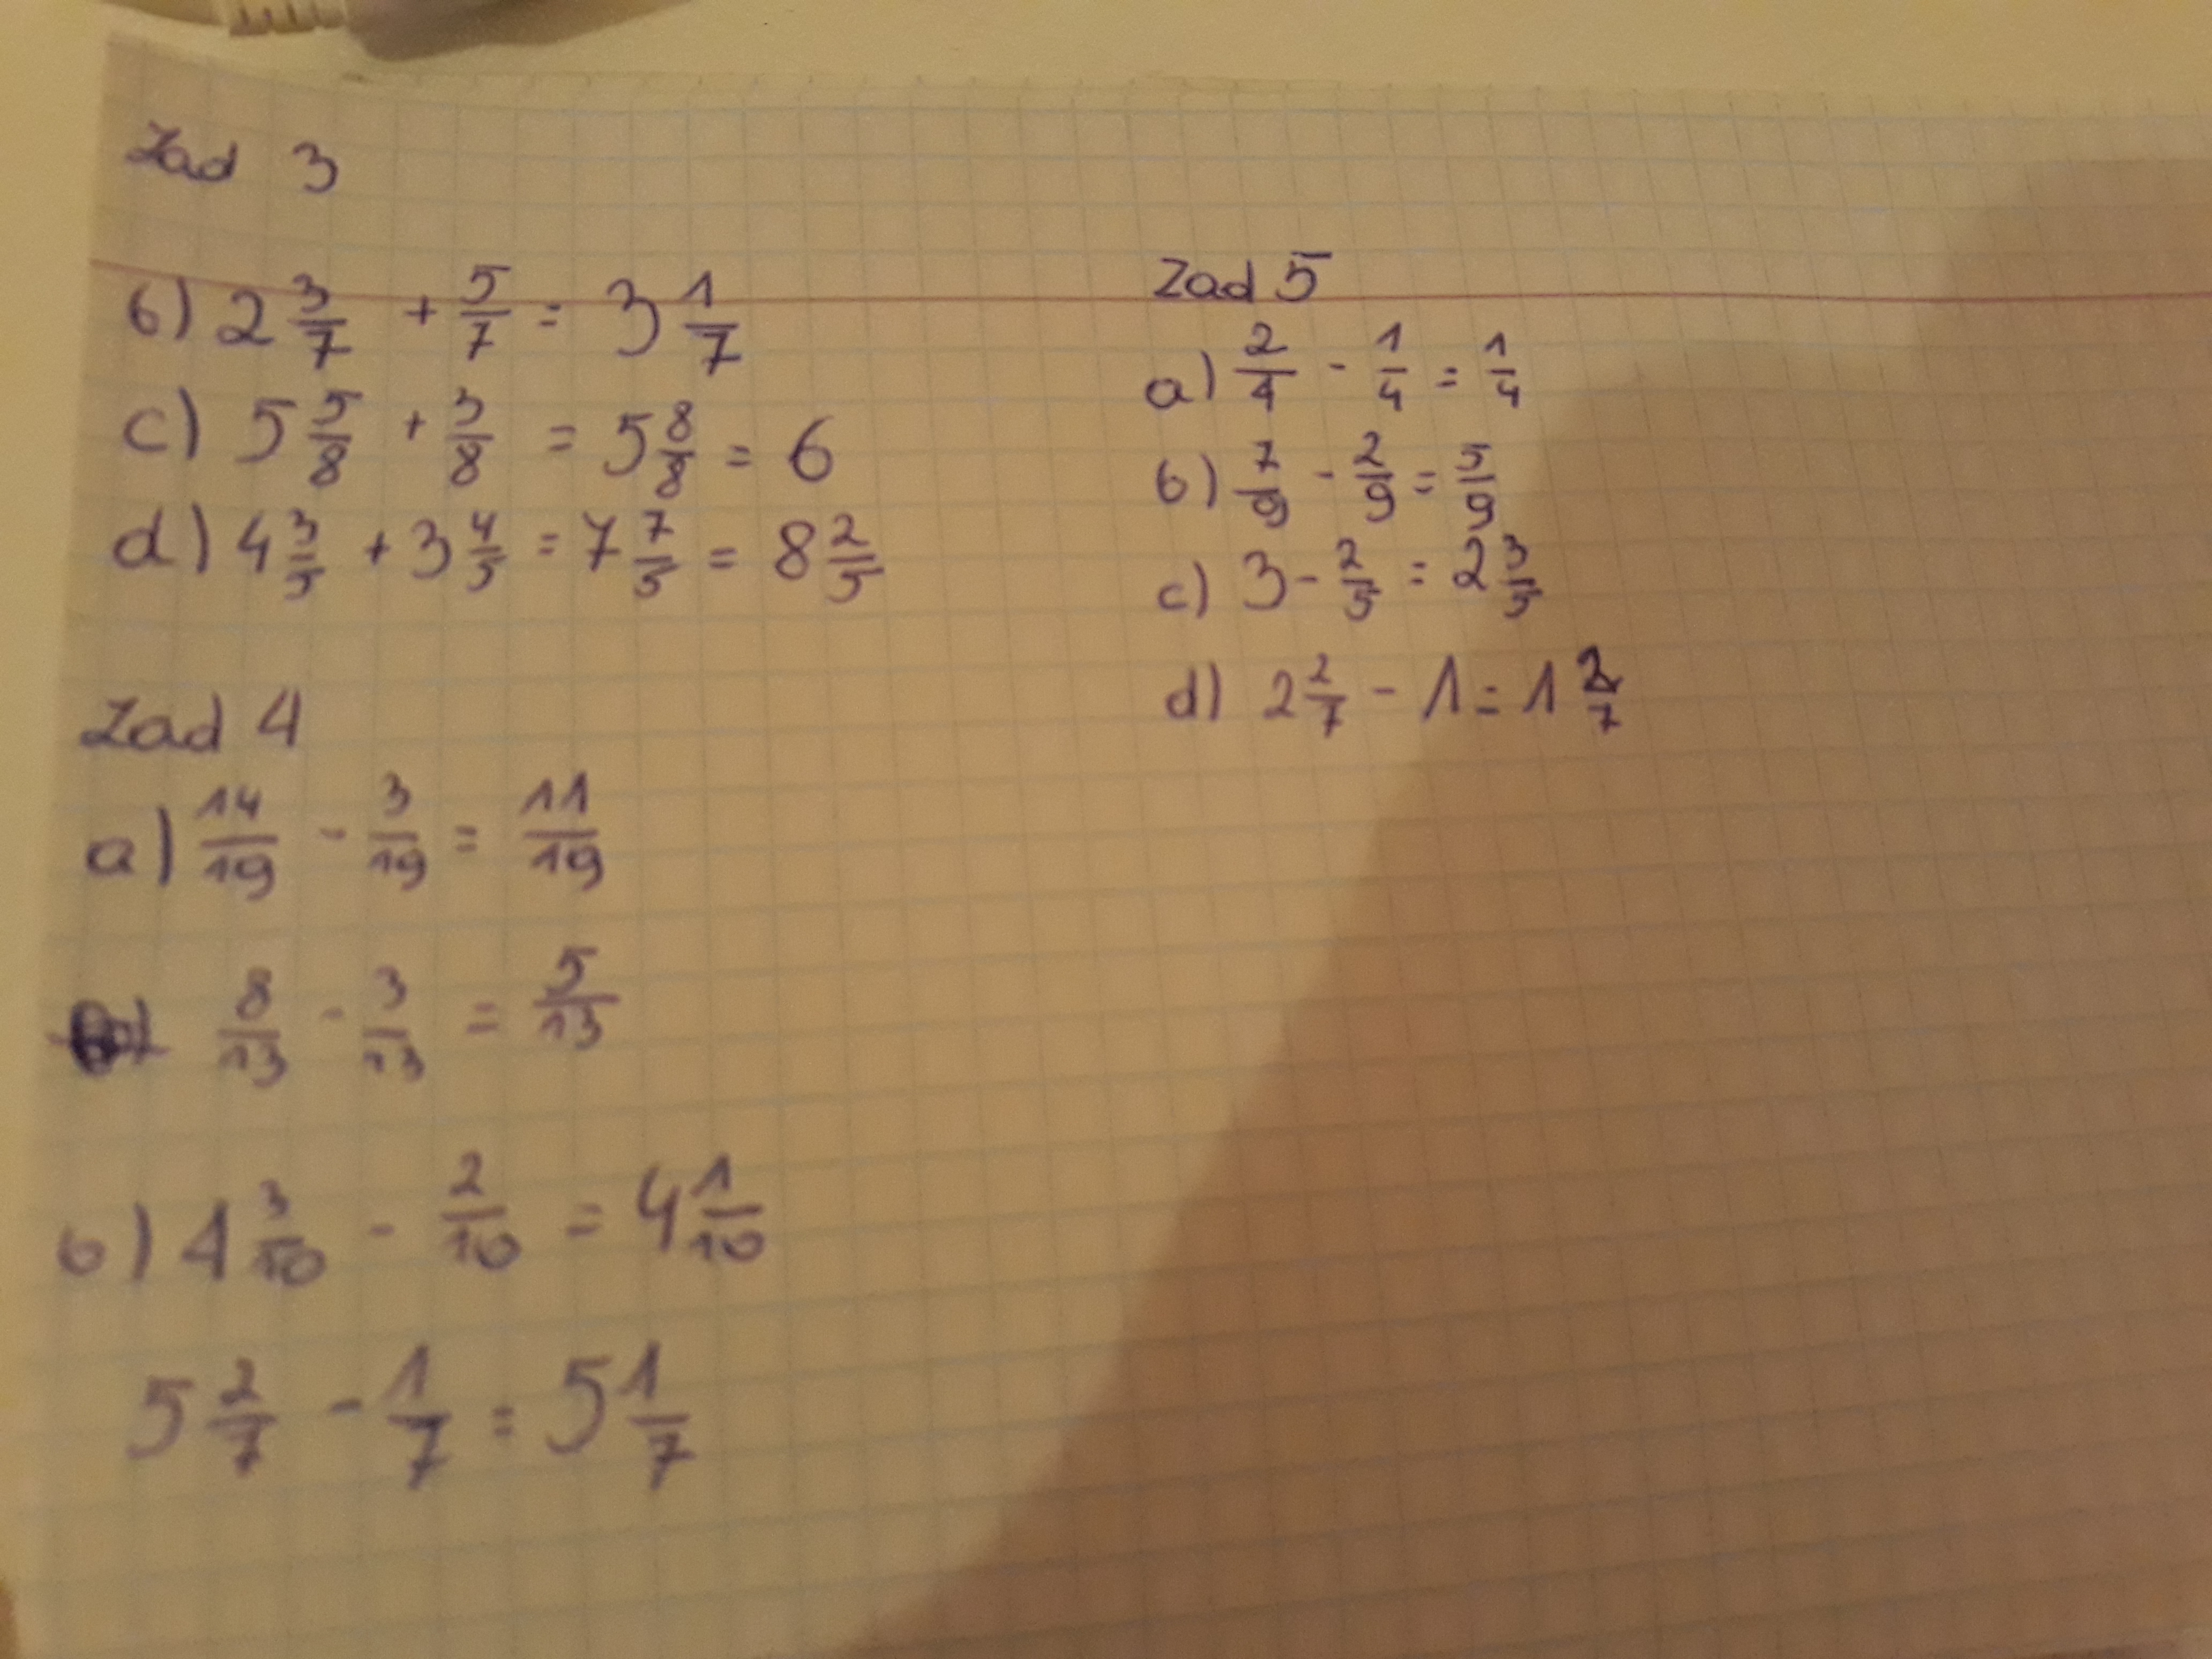 Zad 3
b) 2 3/7 + 5/7 = 3 1/7
c) 5 5/8 + 3/8 = 5 8/8 = 6
d) 4 3/5 + 3 4/5 = 7 7/5 = 8 2/5
Zad 4
a) 14/19 - 3/19 = 11/19
8/13 - 3/13 = 5/13
b) 4 3/10 - 2/10 = 4 1/10
5 2/7 - 1/7 = 5 1/7
Zad 5
a) 2/4 - 1/4 = 1/4
b) 7/9 - 2/9 = 5/9
c) 3 - 2/5 = 2 3/5
d) 2 2/7 - 1 = 1 2/7